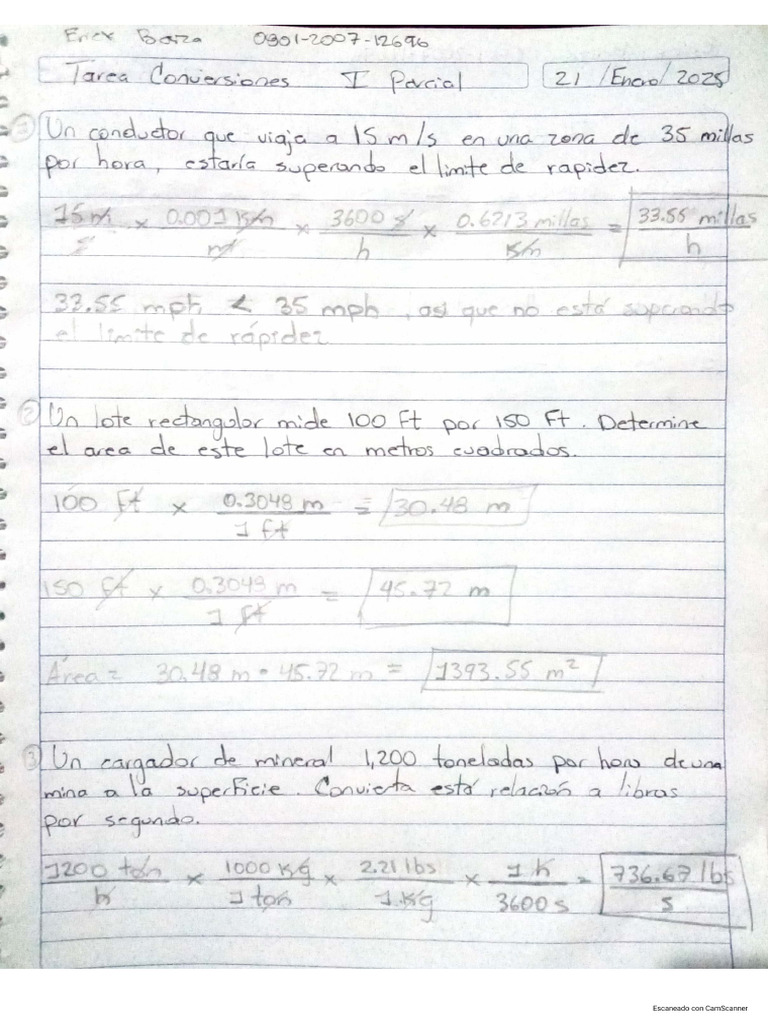 Erick Barza 0901-2007-12696
Tarea Conversiones I Parcial 21/Enero/2025
1 Un conductor que viaja a 15 m/s en una zona de 35 millas
por hora, estaría superando el limite de rapidez.
15 m/s × 0.001 Km/m × 3600 s/h × 0.6213 millas/Km = 33.55 millas/h
33.55 mph < 35 mph, asi que no está superando
el limite de rápidez
2 Un lote rectangular mide 100 Ft por 150 Ft. Determine
el area de este lote en metros cuadrados.
100 Ft × 0.3048 m/1 ft = 30.48 m
150 ft × 0.3048 m/1 ft = 45.72 m
Área = 30.48 m • 45.72 m = 1393.55 m²
3 Un cargador de mineral 1,200 toneladas por hora de una
mina a la superficie. Convierta está relación a libras
por segundo.
1200 ton/h × 1000 Kg/1 ton × 2.21 lbs/1 Kg × 1 h/3600 s = 736.67 lbs/s
Escaneado con CamScanner